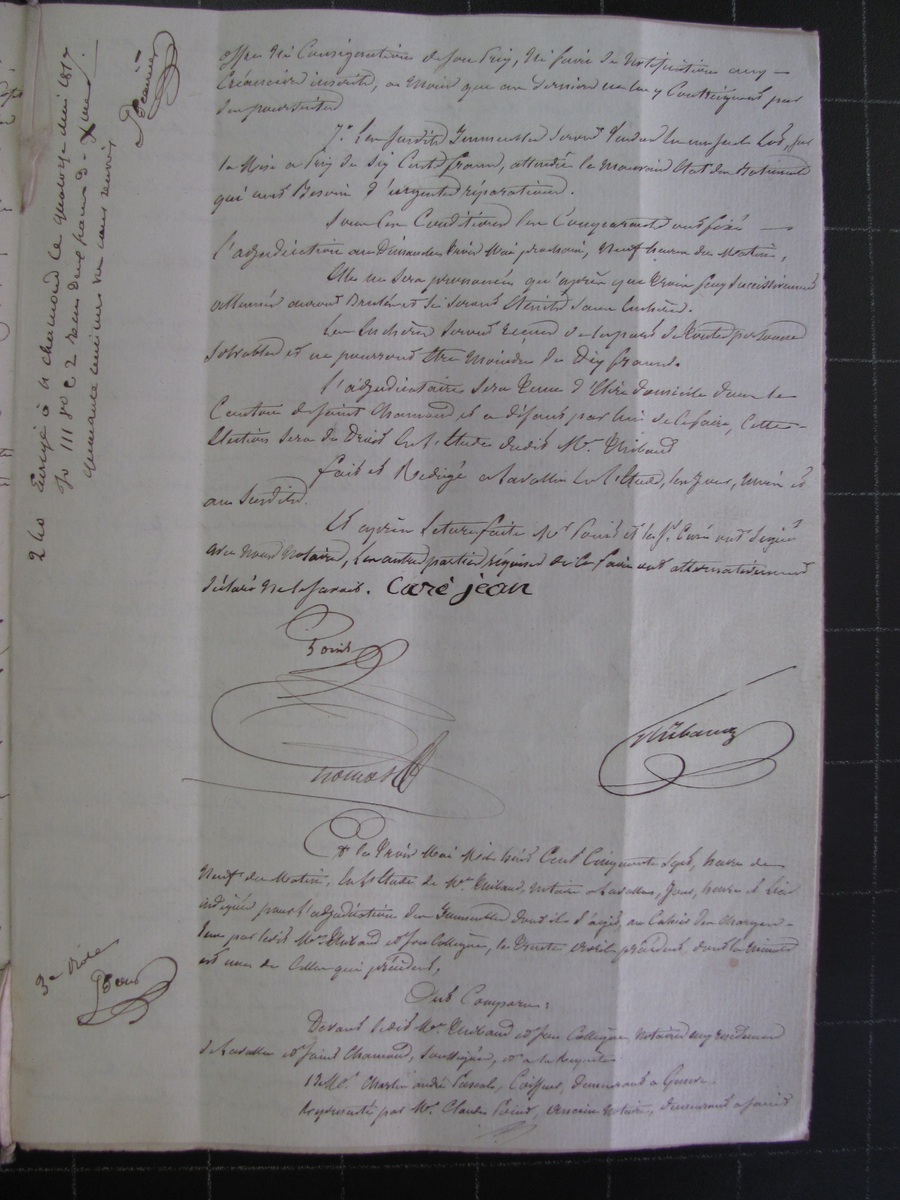 offres ni Consignations de son Prix, ni faire de notifications aux
Créanciers inscrits, à moins que ces derniers ne l'y contraignent par
des poursuites
7° Les susdits Immeubles seront vendus en un seul Lot, sur
la Mise à Prix de Six Cents francs, attendu le mauvais état des Bâtiments
qui ont Besoin d'urgentes réparations.
Sous ces Conditions les Comparants ont fixé
l'adjudication au Dimanche trois Mai prochain, neuf heures du Matin,
Elle ne sera prononcée qu'après que trois feux successivement
allumés auront Brulé et se seront éteints sans Enchère.
Les Enchères seront reçues de la part de toutes personnes
solvables et ne pourront être moindres de Dix francs.
L'adjudicataire sera tenu d'élire domicile dans le
Canton de Saint Chamond et à défaut par lui de le faire, cette
élection sera de Droit en l'étude dudit Me. Thibaud
fait et Rédigé à Lavalla en l'étude, les jour, mois et
an susdits.
Et après lecture faite Mr. Poinst et le Sr. Caré ont signé
avec nous Notaires, les autres parties requises de le faire ont
déclaré ne le savoir. Caré jean
Thibaud
Et le trois Mai Mil huit Cent Cinquante Sept, heure de
neuf du Matin, en l'étude de Me. Thibaud, Notaire à Lavalla, jour, heure et lieu
indiqués pour l'adjudication des Immeubles dont il s'agit, au Cahier des Charges
reçu par ledit Me. Thibaud et son Collègue, le trente avril précédent, dont la minute
est une de celles qui précèdent,
Ont Comparu:
Devant ledit Me. Thibaud et son Collègue, Notaires aux résidences
de Lavalla et Saint Chamond, soussignés, et à la requête
De Mr. Martin andré Pascal, Coiffeur, demeurant à
Représenté par Mr. Claude, ancien notaire, demeurant à Saint
Enregistré à St chamond le quatorze mai 1857
fo 111 Vo C 2 reçu deux francs D.
quarante centimes
3e Rôle